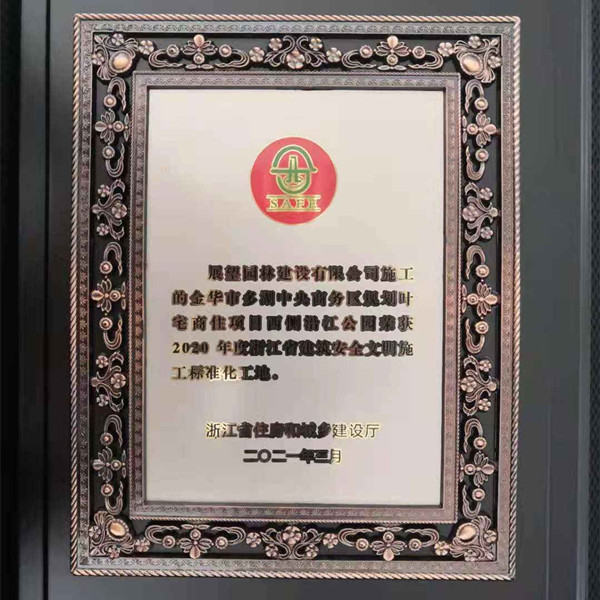 SAFE
展望园林建设有限公司施工
的金华市多湖中央商务区规划叶
宅商住项目西侧沿江公园荣获
2020 年度浙江省建筑安全文明施
工标准化工地。
浙江省住房和城乡建设厅
二〇二一年三月